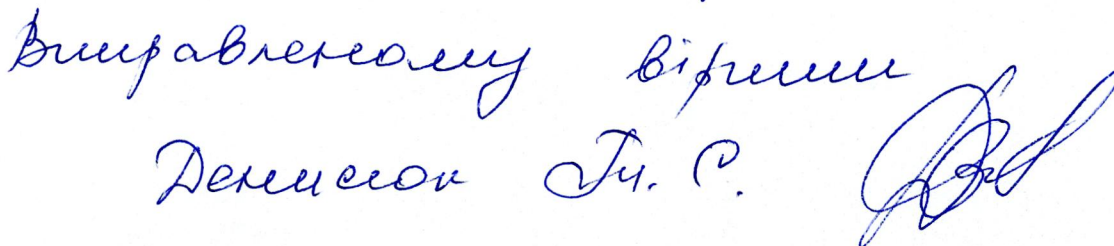 Виправленому вірити
Денисюк Гл. С.